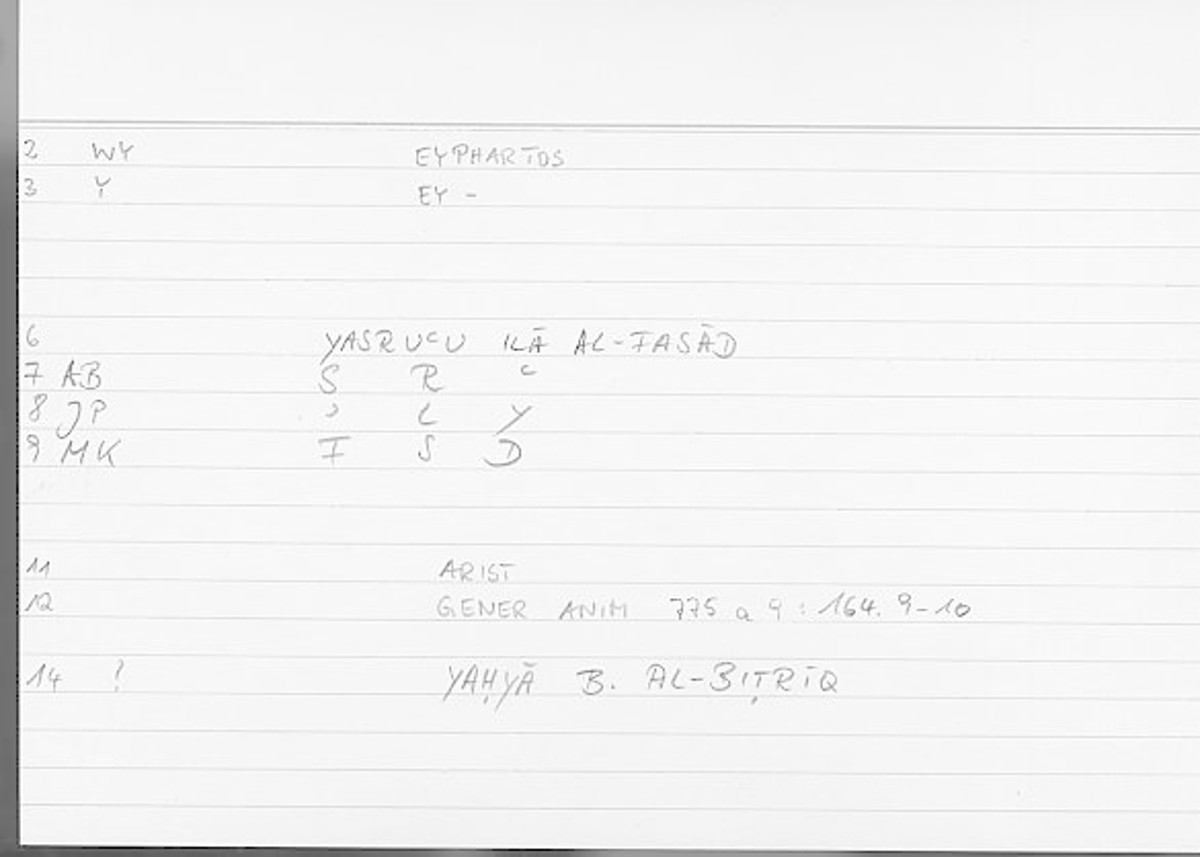 2 WY EYPHARTOS
3 Y EY -
6 YASRUʿU ILĀ AL-FASĀD
7 AB S R ʿ
8 JP ʾ L Y
9 MK F S D
11 ARIST
12 GENER ANIM 775 a 9 : 164. 9-10
14 ? YAḤYĀ B. AL-BIṬRĪQ